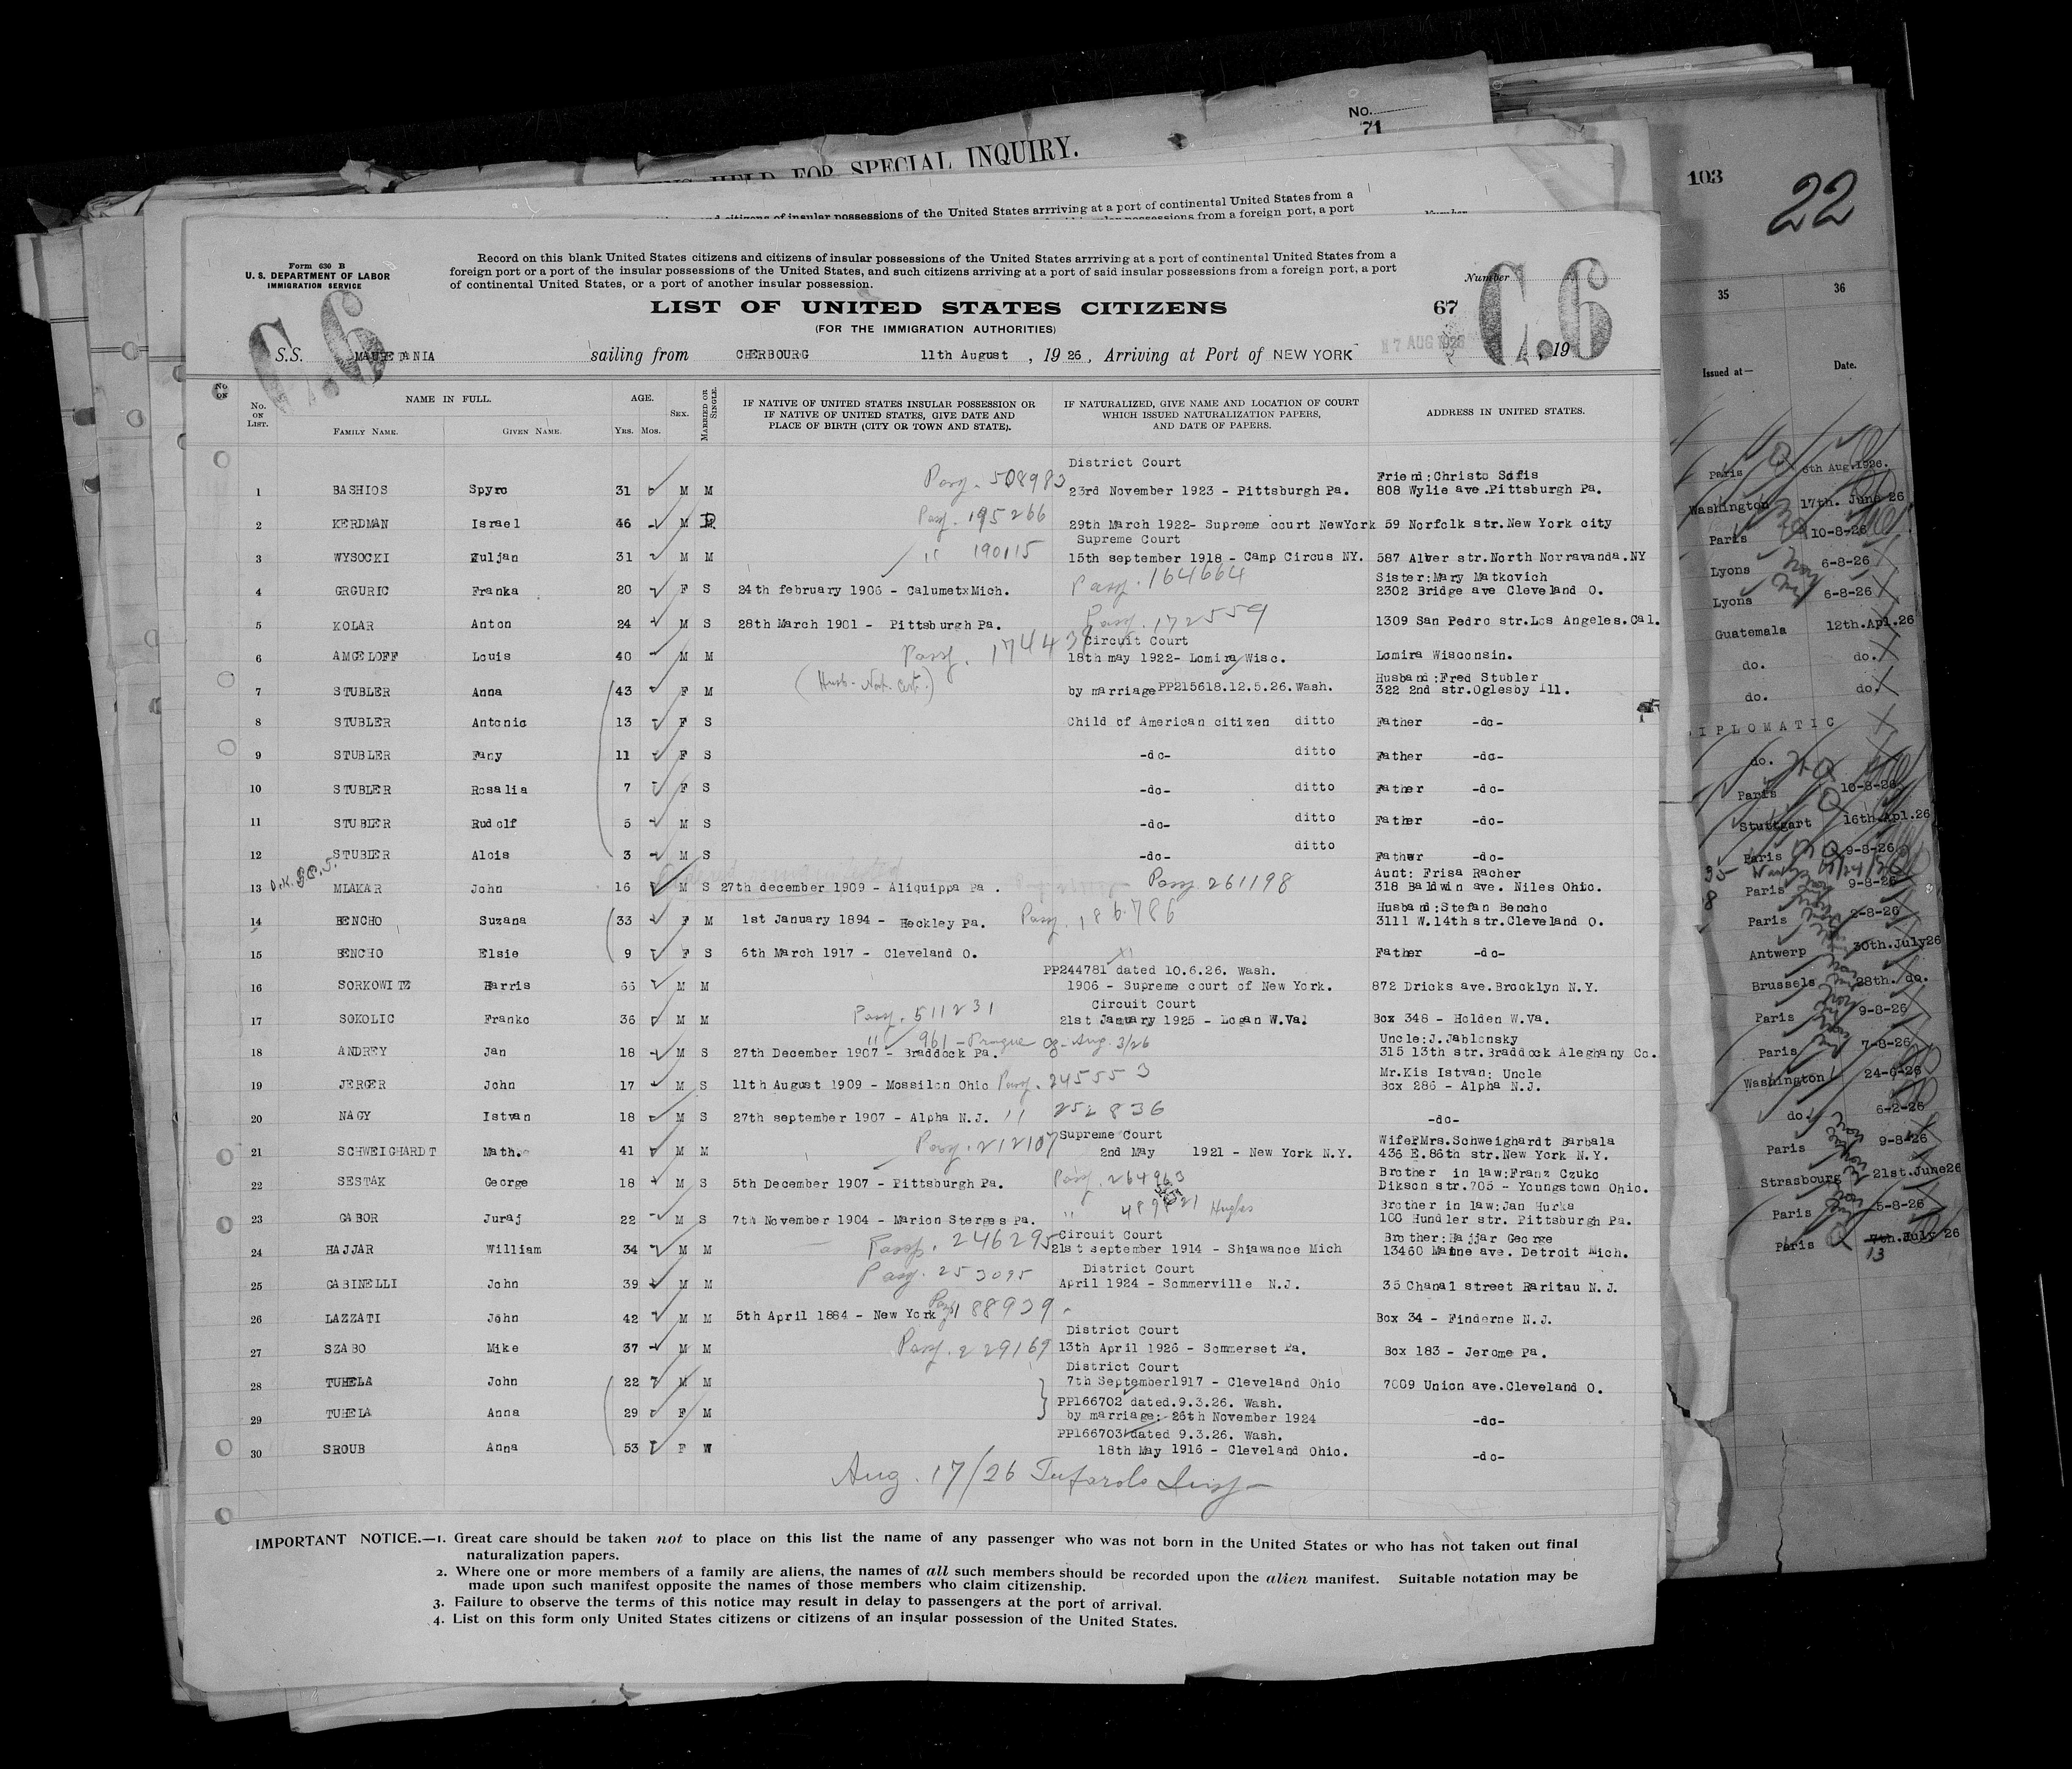 No.
71
HELD FOR SPECIAL INQUIRY.
and citizens of insular possessions of the United States arrriving at a port of continental United States from a
possessions from a foreign port, a port
Number
103
22
35 36
Issued at— Date.
Form 630 B
U. S. DEPARTMENT OF LABOR
IMMIGRATION SERVICE
Record on this blank United States citizens and citizens of insular possessions of the United States arrriving at a port of continental United States from a
foreign port or a port of the insular possessions of the United States, and such citizens arriving at a port of said insular possessions from a foreign port, a port
of continental United States, or a port of another insular possession.
Number
C.6
C.6
LIST OF UNITED STATES CITIZENS
67
(FOR THE IMMIGRATION AUTHORITIES)
S.S. MAURETANIA sailing from CHERBOURG 11th August , 19 26 , Arriving at Port of NEW YORK 17 AUG 1926 , 19
No. ON LIST. NAME IN FULL. FAMILY NAME. GIVEN NAME. AGE. YRS. MOS. SEX. MARRIED OR SINGLE.
IF NATIVE OF UNITED STATES INSULAR POSSESSION OR
IF NATIVE OF UNITED STATES, GIVE DATE AND
PLACE OF BIRTH (CITY OR TOWN AND STATE).
IF NATURALIZED, GIVE NAME AND LOCATION OF COURT
WHICH ISSUED NATURALIZATION PAPERS,
AND DATE OF PAPERS.
ADDRESS IN UNITED STATES.
District Court
Pass. 508983 Friend:Christo Sofis
1 BASHIOS Spyro 31 M M 23rd November 1923 - Pittsburgh Pa. 808 Wylie ave.Pittsburgh Pa.
Pass. 195266
2 KERDMAN Israel 46 M 29th March 1922- Supreme court NewYork 59 Norfolk str.New York city
Supreme Court
3 WYSOCKI Huljan 31 M M " 190115 15th september 1918 - Camp Circus NY. 587 Alver str.North Norravanda.NY
Pass. 164664 Sister:Mary Matkovich
4 GRGURIC Franka 20 F S 24th february 1906 - CalumetxMich. 2302 Bridge ave Cleveland O.
Pass. 172559
5 KOLAR Anton 24 M S 28th March 1901 - Pittsburgh Pa. 1309 San Pedro str.Los Angeles.Cal.
Circuit Court
6 AMGELOFF Louis 40 M M Pass. 174438 18th may 1922- Lomira Wisc. Lomira Wisconsin.
(Husb- Nat. Cert.) Husband:Fred Stubler
7 STUBLER Anna 43 F M by marriage PP215618.12.5.26.Wash. 322 2nd str.Oglesby Ill.
8 STUBLER Antonio 13 F S Child of American citizen ditto Father -do-
9 STUBLER Fany 11 F S -do- ditto Father -do-
10 STUBLER Rosalia 7 F S -do- ditto Father -do-
11 STUBLER Rudolf 5 M S -do- ditto Father -do-
12 STUBLER Alois 3 M S -do- ditto Father -do-
O.K. Aunt: Frisa Racher
13 MLAKAR John 16 M S 27th december 1909 - Aliquippa Pa . Pass. 261198 318 Baldwin ave. Niles Ohio.
Husband:Stefan Bencho
14 BENCHO Suzana 33 F M 1st January 1894 - Heckley Pa. Pass. 186786 3111 W.14th str.Cleveland O.
15 BENCHO Elsie 9 F S 6th March 1917 - Cleveland O. Father -do-
PP244781 dated 10.6.26. Wash.
16 SORKOWITZ Harris 66 M M 1906 - Supreme court of New York. 872 Dricks ave.Brooklyn N.Y.
Circuit Court
17 SOKOLIC Franko 36 M M Pass. 511231 21st January 1925 - Logan W.Va. Box 348 - Holden W.Va.
" 961 - Prague Aug. 3/26 Uncle:J.Jablonsky
18 ANDREY Jan 18 M S 27th December 1907 - Braddock Pa. 315 13th str.Braddock Aleghany Co.
Mr.Kis Istvan: Uncle
19 JERGER John 17 M S 11th August 1909 - Mossilon Ohio Pass. 245553 Box 286 - Alpha N.J.
20 NAGY Istvan 18 M S 27th september 1907 - Alpha N.J. " 252836 -do-
Supreme Court WifePMrs.Schweighardt Barbala
21 SCHWEIGHARDT Math. 41 M M Pass. 212107 2nd May 1921 - New York N.Y. 436 E.86th str.New York N.Y.
Brother in law:Franz Czuko
22 SESTAK George 18 M S 5th December 1907 - Pittsburgh Pa. Pass. 264963 Dikson str.705 - Youngstown Ohio.
Brother in law:Jan Hurks
23 GABOR Juraj 22 M S 7th November 1904 - Marion Sterges Pa. " 489821 Hughes 100 Hundler str. Pittsburgh Pa.
Circuit Court Brother:Hajjar George
24 HAJJAR William 34 M M Pass. 246295 21st september 1914 - Shiawance Mich 13460 Maine ave. Detroit Mich.
District Court
25 GABINELLI John 39 M M Pass. 253095 April 1924 - Sommerville N.J. 35 Chanal street Raritau N.J.
26 LAZZATI John 42 M M 5th April 1884 - New York Pass. 188939 Box 34 - Finderne N.J.
District Court
27 SZABO Mike 37 M M Pass. 229169 13th April 1926 - Sommerset Pa. Box 183 - Jerome Pa.
District Court
28 TUHELA John 22 M M 7th September1917 - Cleveland Ohio 7009 Union ave.Cleveland O.
PP166702 dated.9.3.26. Wash.
29 TUHELA Anna 29 F M by marriage: 26th November 1924 -do-
PP166703 dated 9.3.26. Wash.
30 SROUB Anna 53 F W 18th May 1916 - Cleveland Ohio. -do-
Aug. 17/26
IMPORTANT NOTICE.—1. Great care should be taken not to place on this list the name of any passenger who was not born in the United States or who has not taken out final
naturalization papers.
2. Where one or more members of a family are aliens, the names of all such members should be recorded upon the alien manifest. Suitable notation may be
made upon such manifest opposite the names of those members who claim citizenship.
3. Failure to observe the terms of this notice may result in delay to passengers at the port of arrival.
4. List on this form only United States citizens or citizens of an insular possession of the United States.
Paris 6th Aug.1926.
Washington 17th. June 26
Paris 10-8-26
Lyons 6-8-26
Lyons 6-8-26
Guatemala 12th.Apl.26
do. do.
do. do.
IPLOMATIC
do.
Paris 10-8-26
Stuttgart 16th.Apl.26
Paris 9-8-26
Paris 9-8-26
Paris 2-8-26
Antwerp 30th.July26
Brussels 28th. do.
Paris 9-8-26
Paris 7-8-26
Washington 24-6-26
do. 6-2-26
Paris 9-8-26
Strasbourg 21st.June26
Paris 5-8-26
Paris 7th.July 26
13